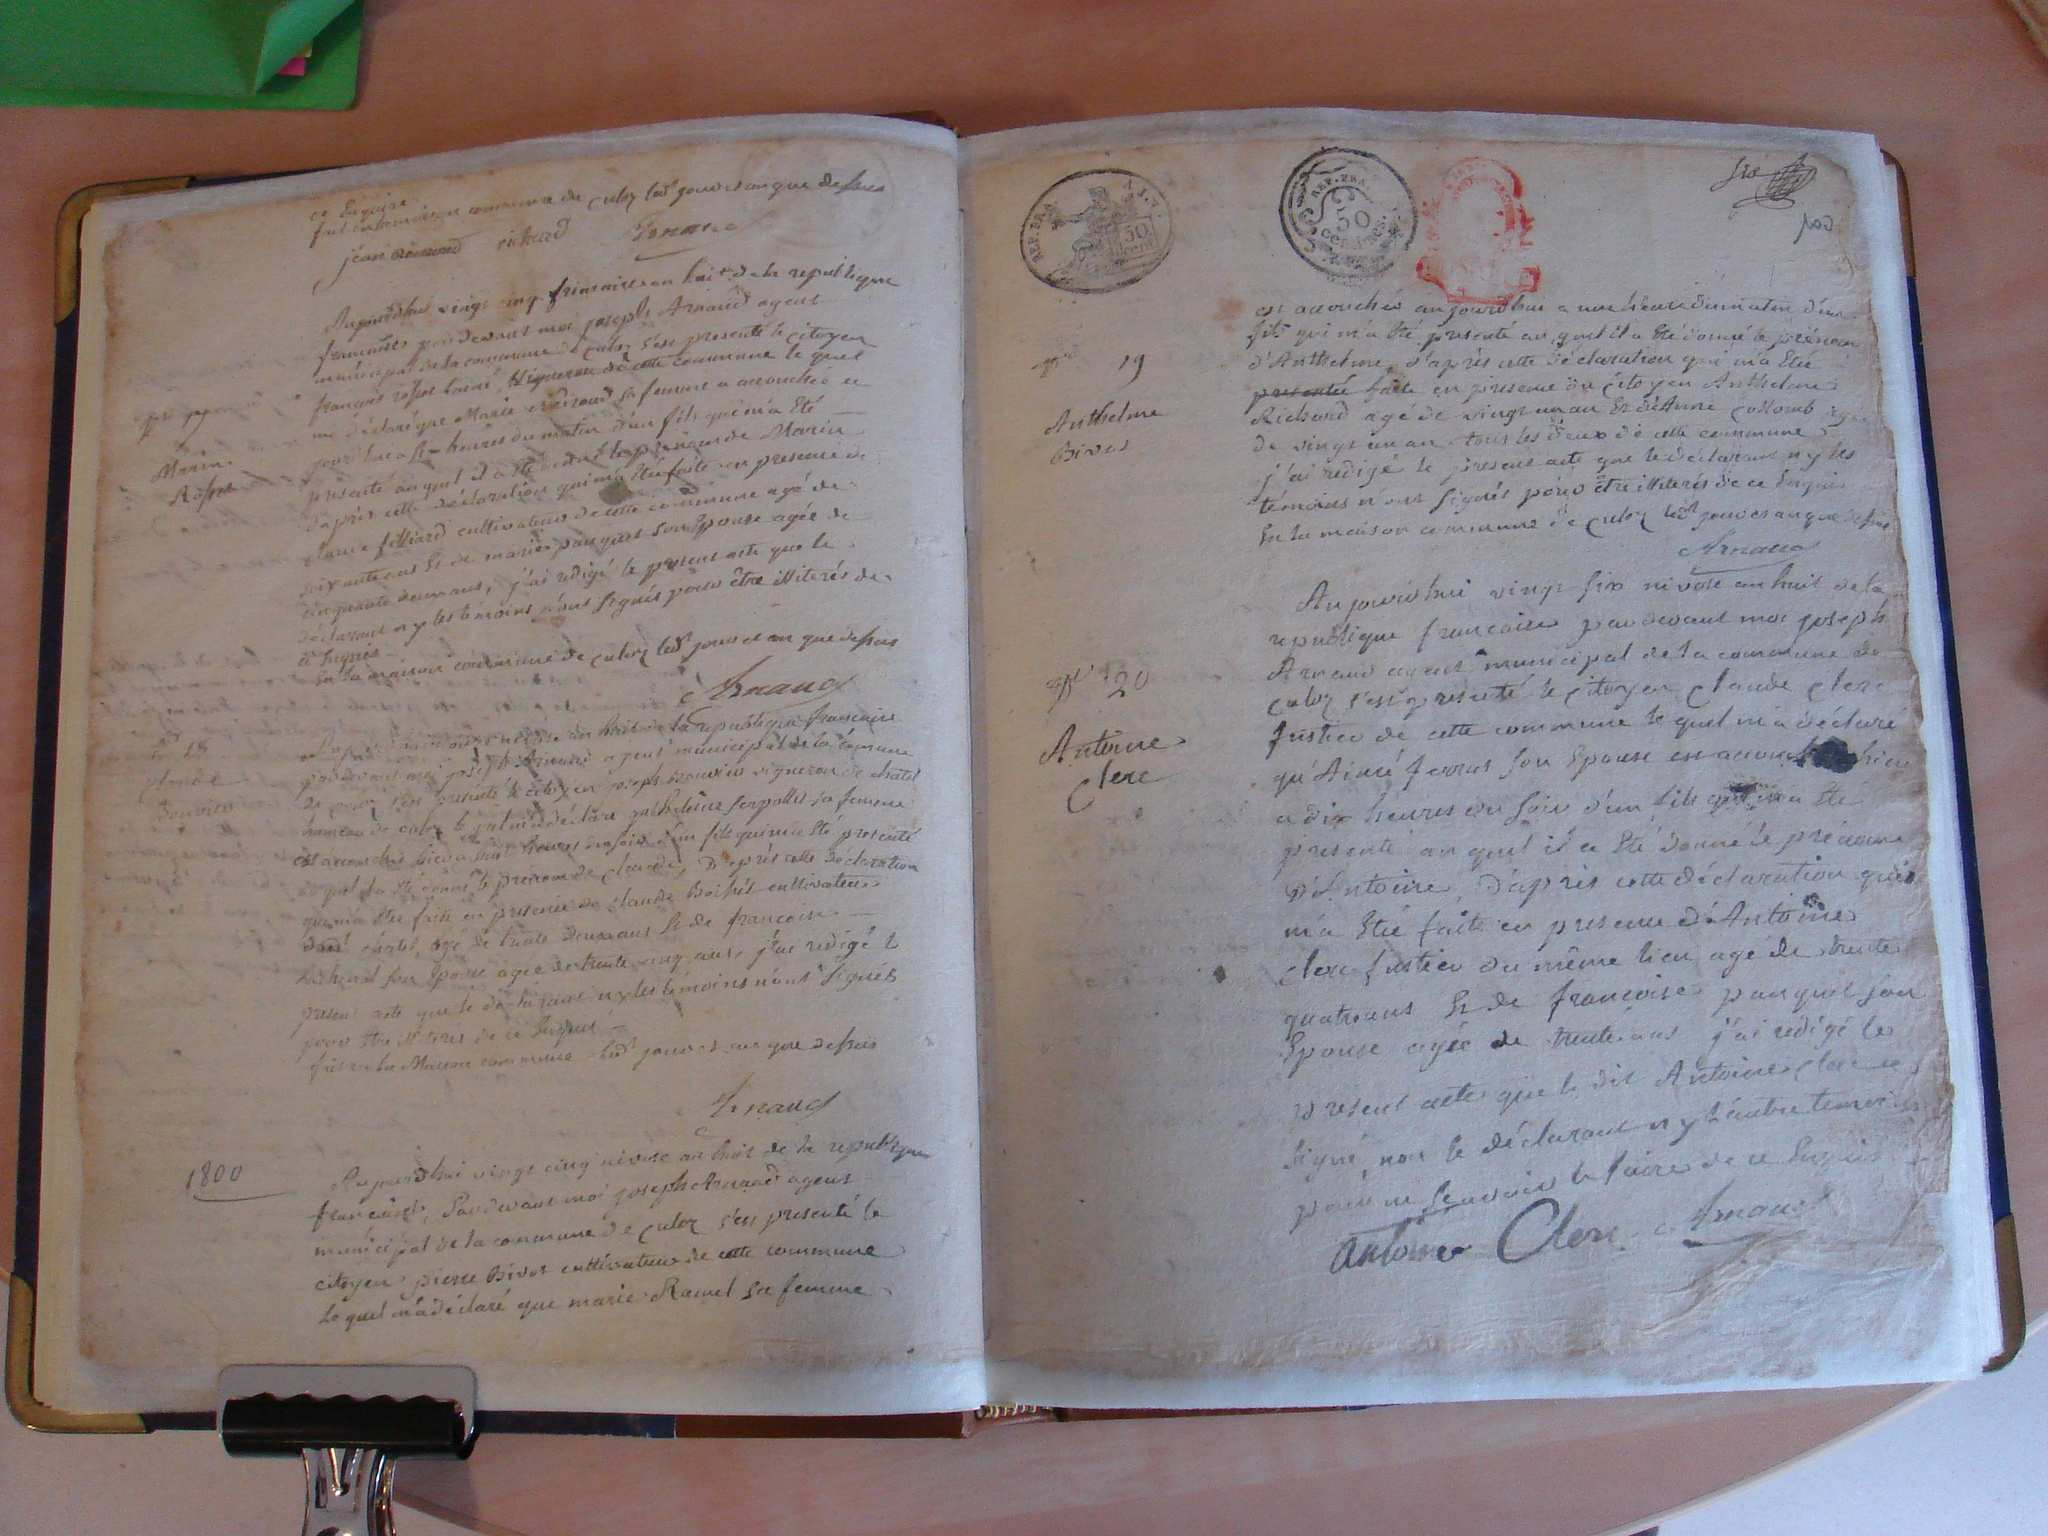 ce Enquise
fait en la maison commune de culoz led jour et an que dessus
jean aimond richard Arnaud
Aujourdhui vingt cinq frimaire an huit de la republique
francaise par devant moi joseph Arnaud agent
municipal de la commune de culoz s'est presenté le citoyen
françois rosset vigneron de cette commune le quel
m'a déclaré que Marie sa femme a accouchée ce
jourdhui a heures du matin d'un fils qui m'a Eté
presenté au quel il a Eté donné le prénom de Marin
d'après cette déclaration qui m'a Eté faite en presence de
claude filliard cultivateur de cette commune agé de
soixante ans Et de marie panquet son Epouse agée de
cinquante deux ans, j'ai redigé le present acte que le
déclarant n'y les temoins n'ont signés pour être illiterés de
ce Enquis
En la maison commune de culoz led jour et an que dessus
Arnaud
Marin
Rosset
n° 18
claude
Bouvier
nivose an huit de la republique francaise
pardevant moi joseph Arnaud agent municipal de la commune
de culoz s'est presenté le citoyen joseph Bouvier vigneron de chatel
hameau de culoz le quel m'a déclaré serpollet sa femme
est accouchée hier a huit heures du soir d'un fils qui m'a Eté presenté
au quel il a Eté donné le prenom de claude, D'après cette déclaration
qui m'a Eté faite en presence de claude Boithet cultivateur
dud chatel, agé de trente deux ans Et de francoise
son Epouse agée de trente cinq ans, j'ai redigé le
present acte que le déclarant n'y les témoins n'ont signés
pour être illiterés de ce Enquis
fait en la Maison commune led jour et an que dessus
Arnaud
1800
Aujourdhui vingt cinq nivose an huit de la republique
francaise, Pardevant moi joseph Arnaud agent
municipal de la commune de culoz s'est presenté le
citoyen pierre Bivot cultivateur de cette commune
Le quel m'a déclaré que marie Ramel sa femme
REP. FRA.
50
cent.
REP. FRA.
50
centimes
est accouchée aujourdhui a une heure du matin d'un
fils qui m'a Eté presenté au quel il a Eté donné le prénom
d'Anthelme, d'après cette déclaration qui m'a Eté
presentée faite en presence du citoyen Anthelme
Richard agé de vingt un an Et d'Anne collomb agée
de vingt un an tous les deux de cette commune
j'ai redigé le present acte que le déclarant n'y les
témoins n'ont signés pour être illiterés de ce Enquis
En la maison commune de culoz led jour et an que dessus
Arnaud
n° 19
Anthelme
Bivot
n° 20
Antoine
Clerc
Aujourdhui vingt six nivose an huit de la
republique francaise par devant moi joseph
Arnaud agent municipal de la commune de
culoz s'est presenté le citoyen claude clerc
justicier de cette commune le quel m'a déclaré
qu'Aimé ferrus son Epouse est accouchée hier
a dix heures du soir d'un fils qui m'a Eté
presenté au quel il a Eté donné le prénom
d'Antoine, d'après cette déclaration qui
m'a Eté faite en presence d'Antoine
clerc du même lieu agé de trente
quatre ans Et de francoise panquet son
Epouse agée de trente ans j'ai redigé le
present acte que le dit Antoine clerc a
signé, non le déclarant n'y l'autre temoin
pour ne sçavoir le faire de ce Enquis
Antoine Clerc Arnaud